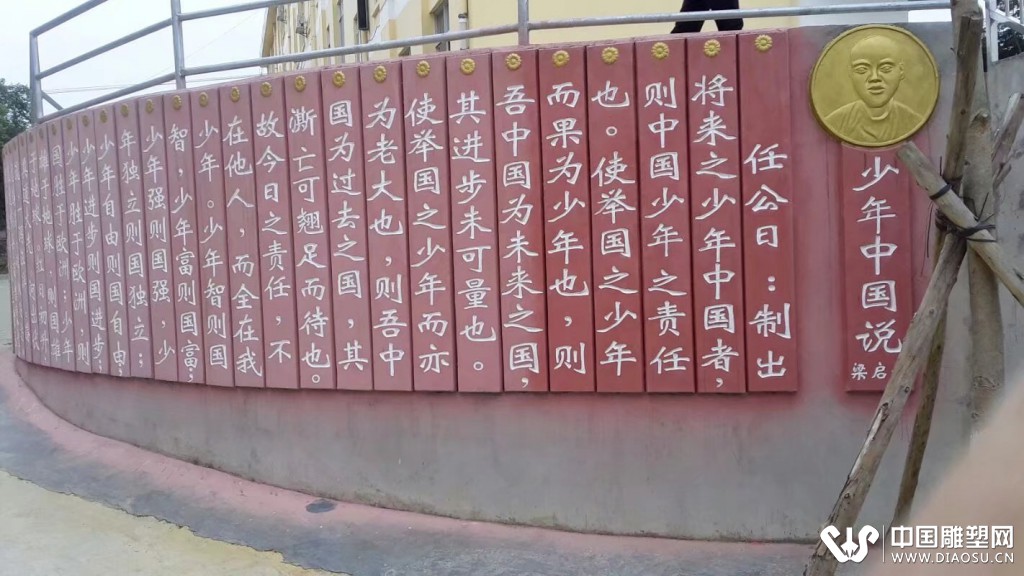 少年中国说
梁启
任公曰：制出
将来之少年中国者，
则中国少年之责任
也。使举国之少年
而果为少年也，则
吾中国为未来之国，
其进步未可量也。
使举国之少年而亦
为老大也，则吾中
国为过去之国，其
澌亡可翘足而待也。
故今日之责任，不
在他人，而全在我
少年。少年智则国
智，少年富则国富；
少年强则国强，少
年独立则国独立；
少年自由则国自由；
少年进步则国进步；
少年胜于欧洲，则
国胜于欧洲；少年
中国雕塑网
WWW.DIAOSU.CN